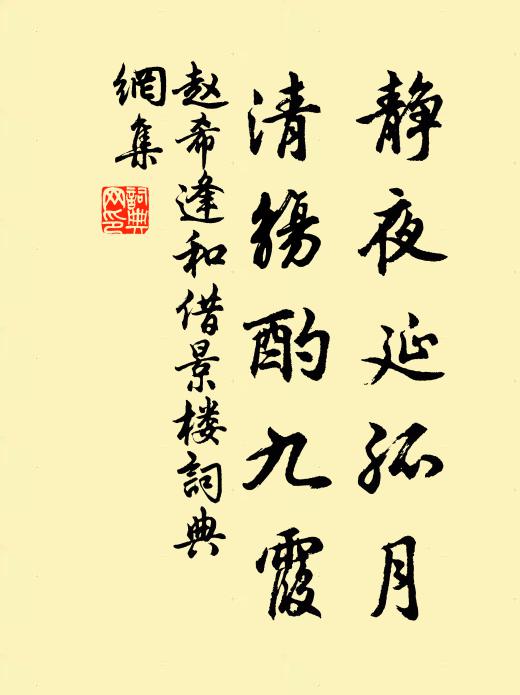 静夜延孤月
清觴酌九霞
赵希逢和借景楼詞典
網集
詞典
网印